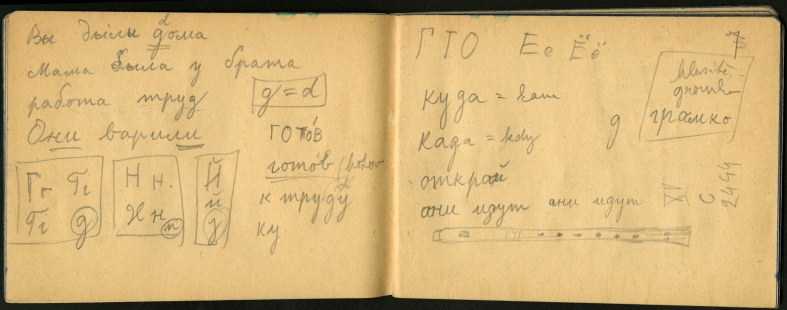 Вы были дома
d
Мама была у брата
работа труд
Они варили
g = d
Гг Гг
Гг g
Н н.
Н н n
Й
й
У
ГОТО́В
гото́в / hotov
к труду
ку
ГТО Ее Ёё
куда = kam
када = kdy
открай
они идут ани идут
hlasitě,
громко
g
XI
C
2444